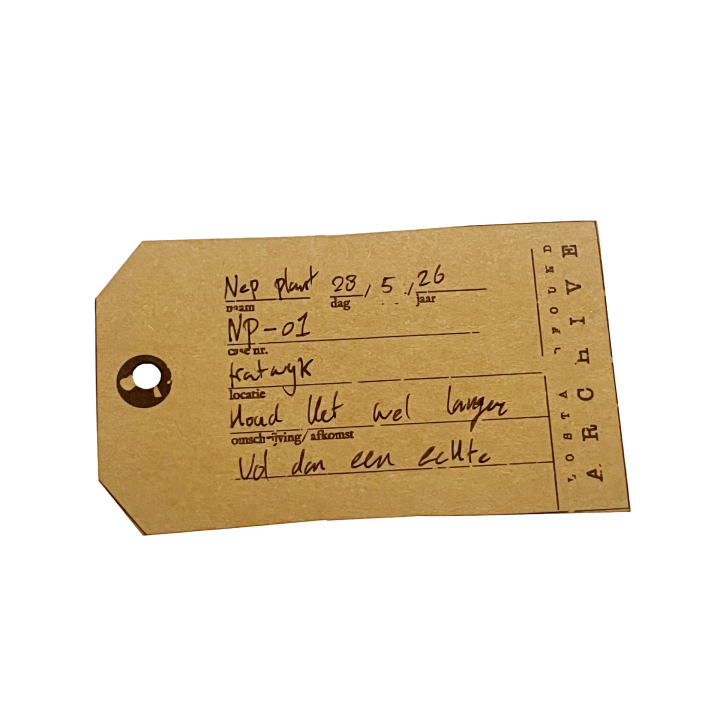 Nep plant 28 / 5 / 26
naam dag jaar
NP-01
case nr.
Katwyk
locatie
Houd het wel langer
omschrijving/ afkomst
Vol dan een echte
LOSTA FOUND
ARCHIVE